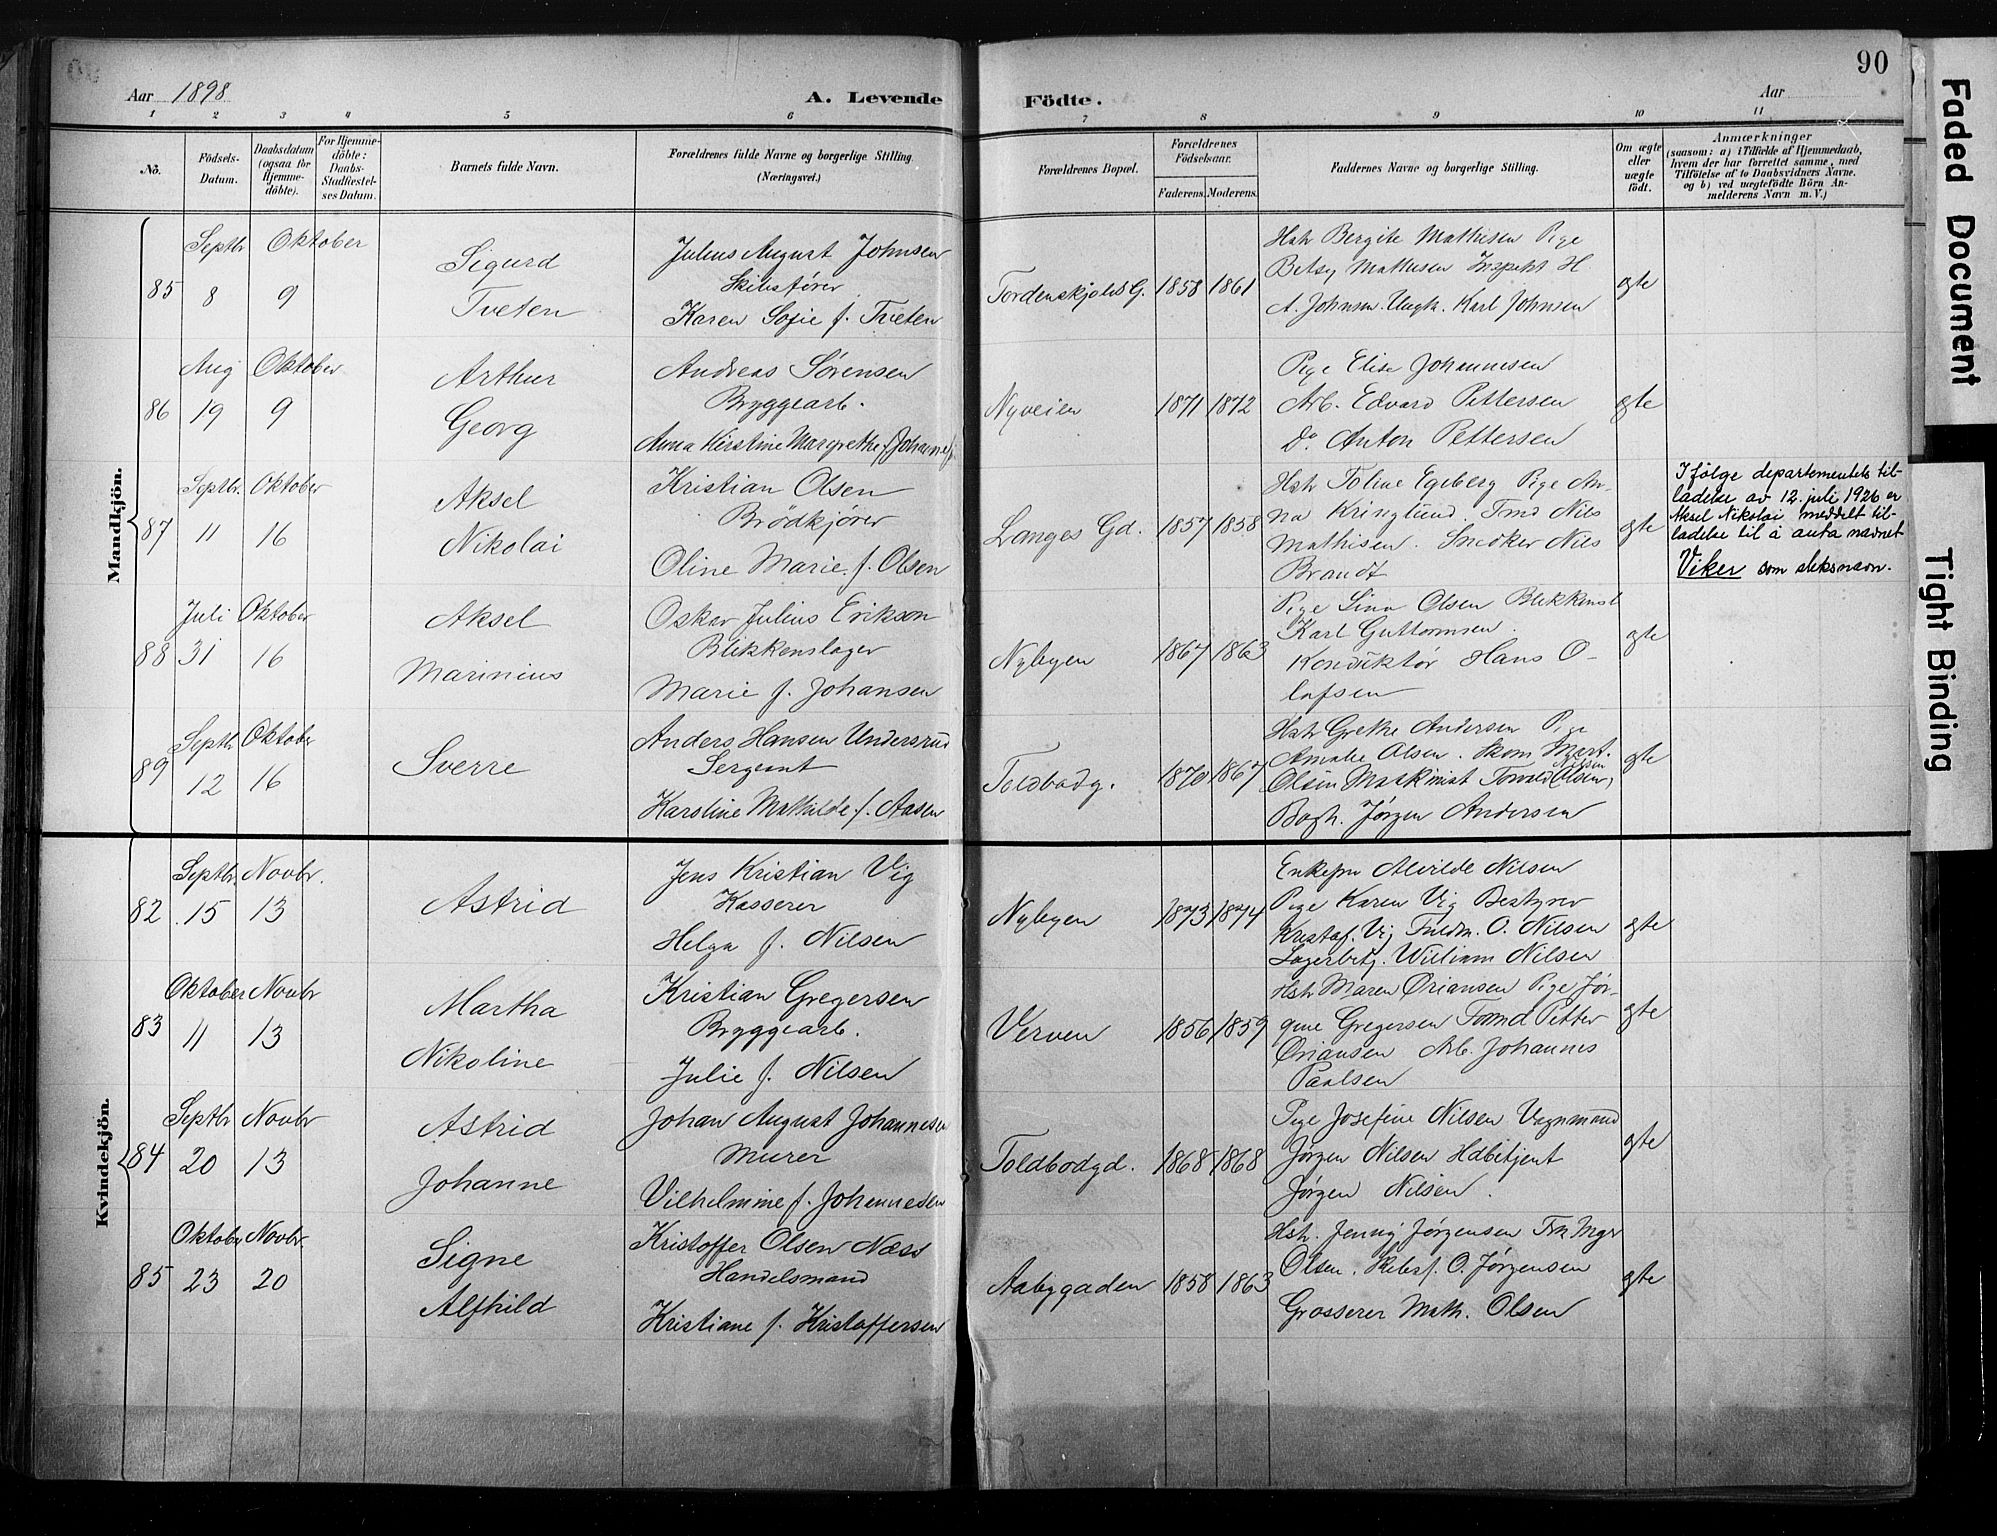 90
Aar 1898
A. Levende Födte.
Aar
1 2 3 4 5 6 7 8 9 10 11
No.
Födsels-Datum.
Daabsdatum (ogsaa for Hjemme-döbte).
For Hjemme-döbte: Daabs-Stadfæstel-ses Datum.
Barnets fulde Navn.
Forældrenes fulde Navne og borgerlige Stilling. (Næringsvei.)
Forældrenes Bopæl.
Forældrenes Födselsaar.
Faderens. Moderens.
Faddernes Navne og borgerlige Stilling.
Om ægte eller uægte født.
Anmærkninger
(saasom: a) i Tilfælde af Hjemmedaab,
hvem der har forrettet samme, med
Tilföielse af to Daabsvidners Navne.
og b) ved uægtefödte Börn An-
melderens Navn m. V.)
Mandkjön.
85 Septbr 8 Oktober 9
Sigurd
Tveten
Julius August Johnsen
Skibsfører
Karen Sofie f. Tveten
Tordenskjolds G. 1858 1861
Hstr Bergite Mathisen Pige
Betsy Mathisen Inspekt H.
A. Johnsen. Ungk. Karl Johnsen
ægte
86 Aug 19 Oktober 9
Arthur
Georg
Andreas Sørensen
Bryggearb.
Anna Kirstine Margrethe f. Johannes
Nyveien 1871 1872
Pige Elise Johannesen
Arb. Edvard Pettersen
Do Anton Pettersen
ægte
87 Septbr. 11 Oktober 16
Aksel
Nikolai
Kristian Olsen
Brödkjører
Oline Marie f. Olsen
Langes Gd. 1857 1858
Hstr Toline Egeberg Pige An-
na Kringlund. Tmd Nils
Mathisen. Snedker Nils
Brandt
ægte
I følge departementets til-
ladelse av 12. juli 1926 er
Aksel Nikolai meddelt til-
ladelse til å anta navnet
Viker som slektsnavn.
88 Juli 31 Oktober 16
Aksel
Marinius
Oskar Julius Erikson
Blikkenslager
Marie f. Johansen
Nybyen 1867 1863
Pige Lina Olsen Blikkensl
Karl Guttormsen.
Konduktør Hans O-
lafsen
ægte
89 Septbr 12 Oktober 16
Sverre
Anders Hansen Undersrud
Sergeant
Karoline Mathilde f. Aasen
Toldbodg. 1870 1867
Hstr Grethe Andersen Pige
Amalie Olsen. Skom Mart.
Olsen Maskinist Torvald Olsen,
Bogh. Jørgen Andersen
ægte
Kvindekjön.
82 Septbr. 15 Novbr. 13
Astrid
Jens Kristian Vig
Kasserer
Helga f. Nilsen
Nybyen 1873 1874
Enkefru Alvilde Nilsen
Pige Karen Vig Bestyrer
Kristof. Vig Fuldm. O. Nilsen
Lagerbetj. William Nilsen
ægte
83 Oktober 11 Novbr 13
Martha
Nikoline
Kristian Gregersen
Bryggearb.
Julie f. Nilsen
Verven 1856 1859
Hstr Maren Øriansen Pige Jør-
gine Gregersen Tømd Petter
Øriansen Arb. Johannes
Paulsen
ægte
84 Septbr 20 Novbr 13
Astrid
Johanne
Johan August Johannesen
Murer
Vilhelmine f. Johannesen
Toldbodgd. 1868 1868
Pige Josefine Nilsen Vognmand
Jørgen Nilsen Hdbitjent
Jørgen Nilsen.
ægte
85 Oktober 23 Novbr. 20
Signe
Alfhild
Kristoffer Olsen Næss
Handelsmand
Kristiane f. Kristoffersen
Aabygaden 1858 1863
Hstr. Jenny Jørgensen Frk Mgr
Olsen. Skibsf. O. Jørgensen
Grosserer Math. Olsen
ægte
Faded Document
Tight Binding